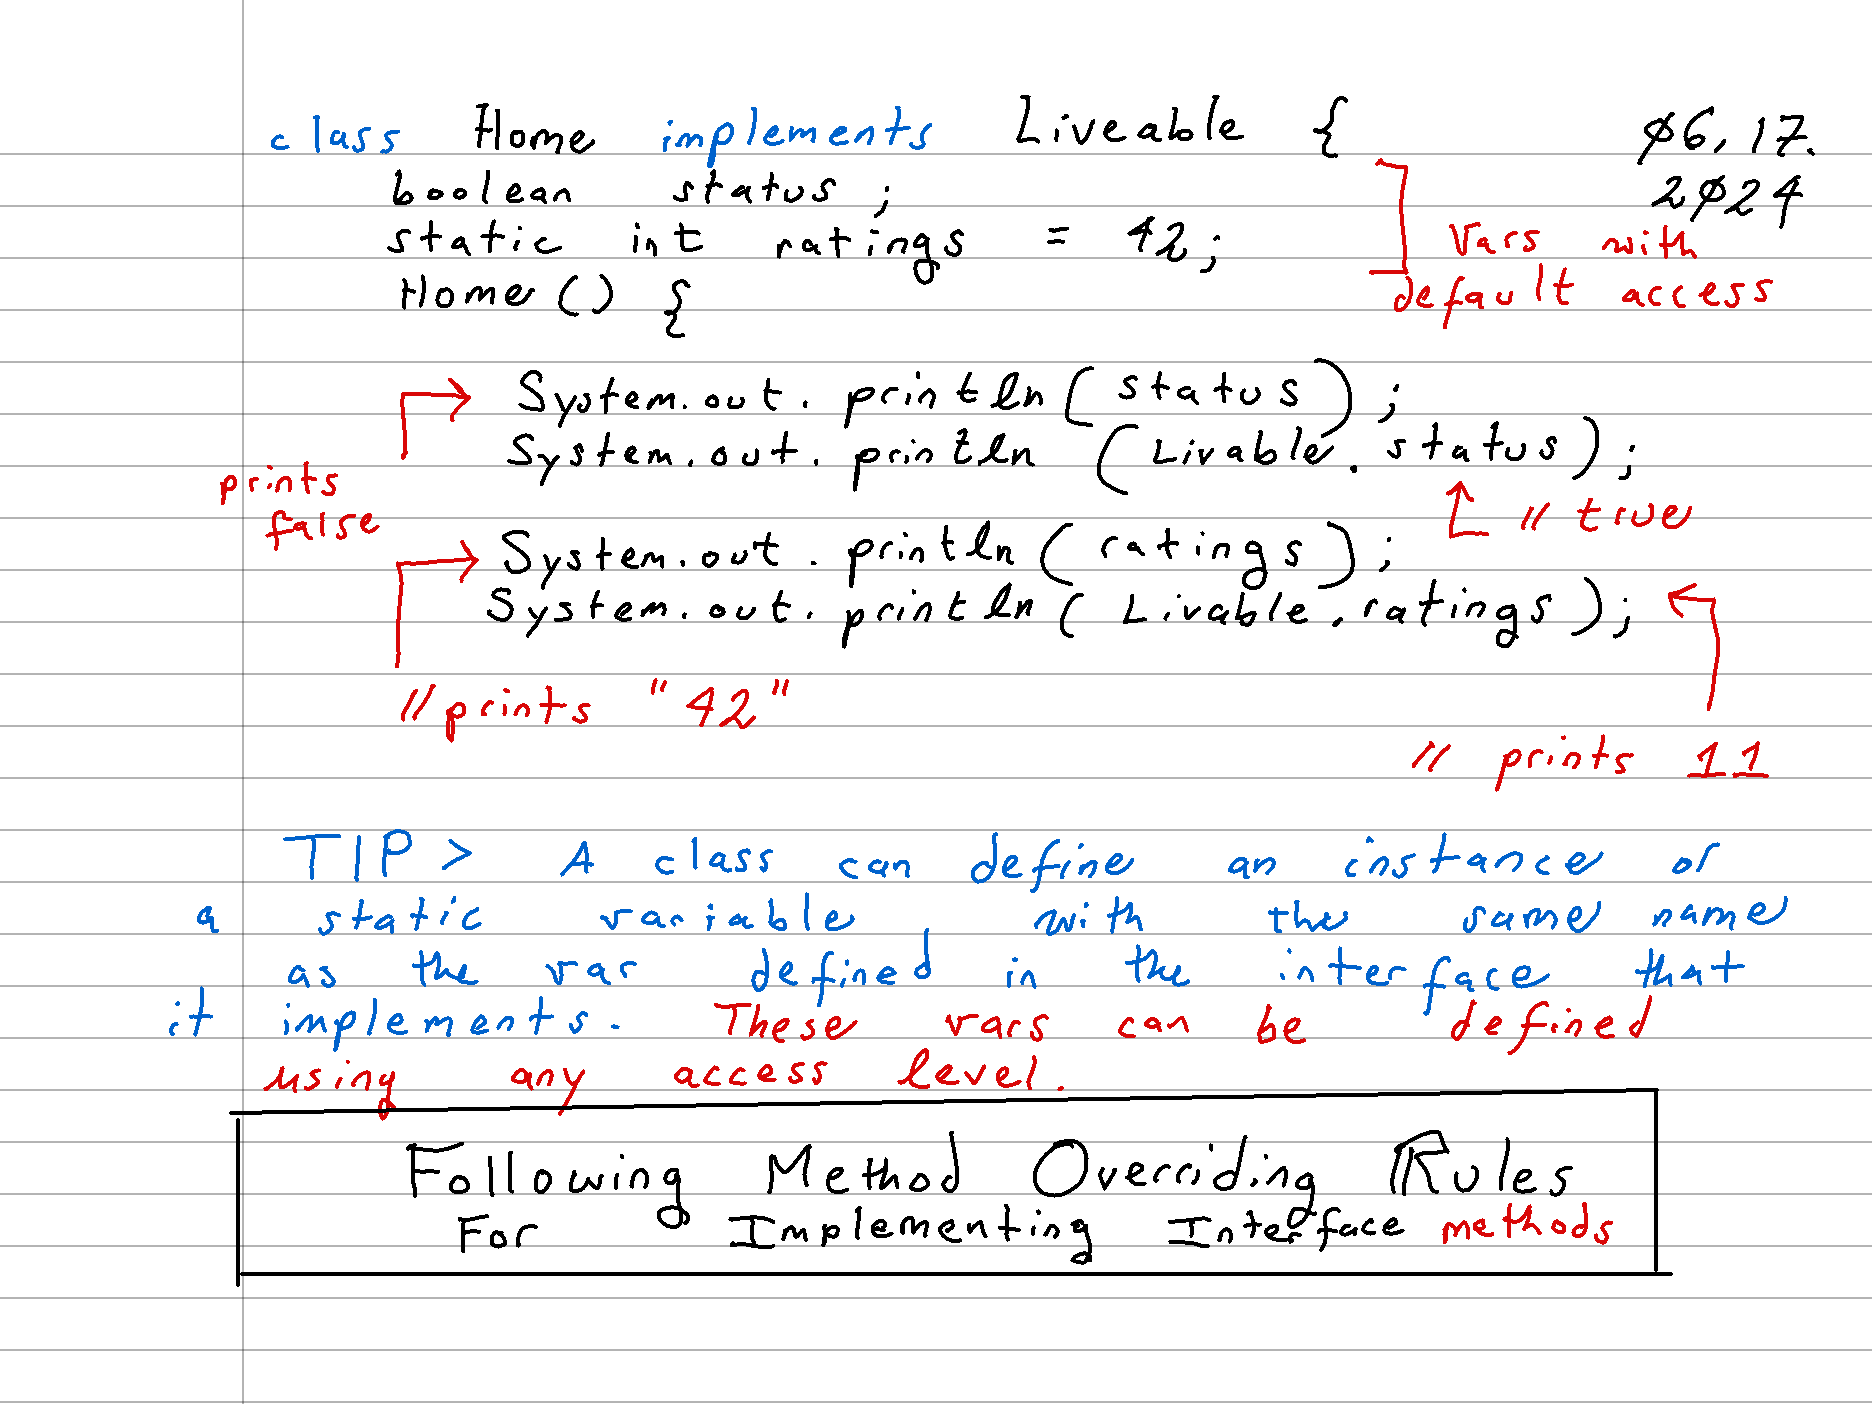 class Home implements Liveable {
Ø6, 17.
2Ø24
boolean status ;
static int ratings = 42;
Vars with
default access
Home () {
System.out. println( status ) ;
System.out. println (Livable. status) ;
prints
false
// true
System.out. println( ratings ) ;
System.out. println( Livable. ratings ) ;
//prints "42"
// prints 11
TIP > A class can define an instance or
a static variable with the same name
as the var defined in the interface that
it implements. These vars can be defined
using any access level.
Following Method Overriding Rules
For Implementing Interface methods